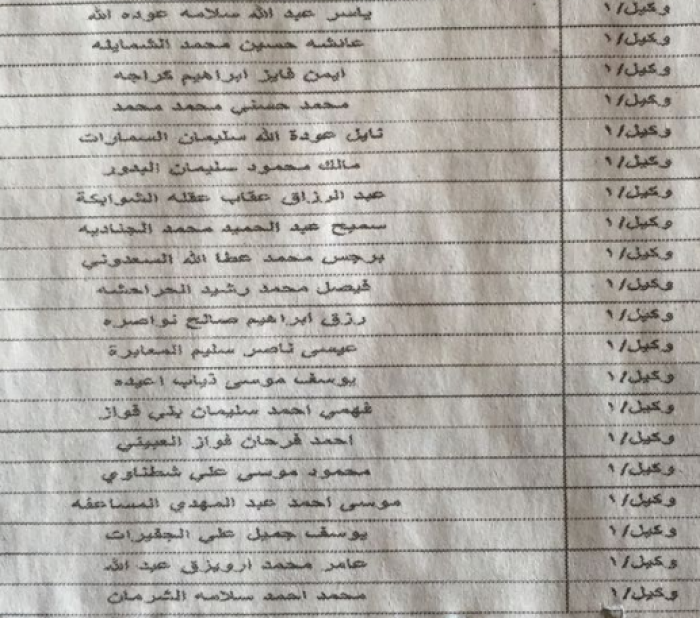 وكيل/١ ياسر عبد الله سلامه عوده الله
وكيل/١ عائشه حسين محمد الشمايله
وكيل/١ ايمن فايز ابراهيم كراجه
وكيل/١ محمد حسني محمد محمد
وكيل/١ نايل عودة الله سليمان السمارات
وكيل/١ مالك محمود سليمان البدور
وكيل/١ عبد الرزاق عقاب عقله الشوابكة
وكيل/١ سميح عبد الحميد محمد الجناديه
وكيل/١ برجس محمد عطا الله السعدوني
وكيل/١ فيصل محمد رشيد الحراحشه
وكيل/١ رزق ابراهيم صالح نواصره
وكيل/١ عيسى ناصر سليم المعابرة
وكيل/١ يوسف موسى ذياب اعيده
وكيل/١ فهمي احمد سليمان بني فواز
وكيل/١ احمد فرحان فواز العبيني
وكيل/١ محمود موسى علي شطناوي
وكيل/١ موسى احمد عبد المهدي المساعفه
وكيل/١ يوسف جميل علي الجقيرات
وكيل/١ عامر محمد ارويزق عبد الله
وكيل/١ محمد احمد سلامه الشرمان